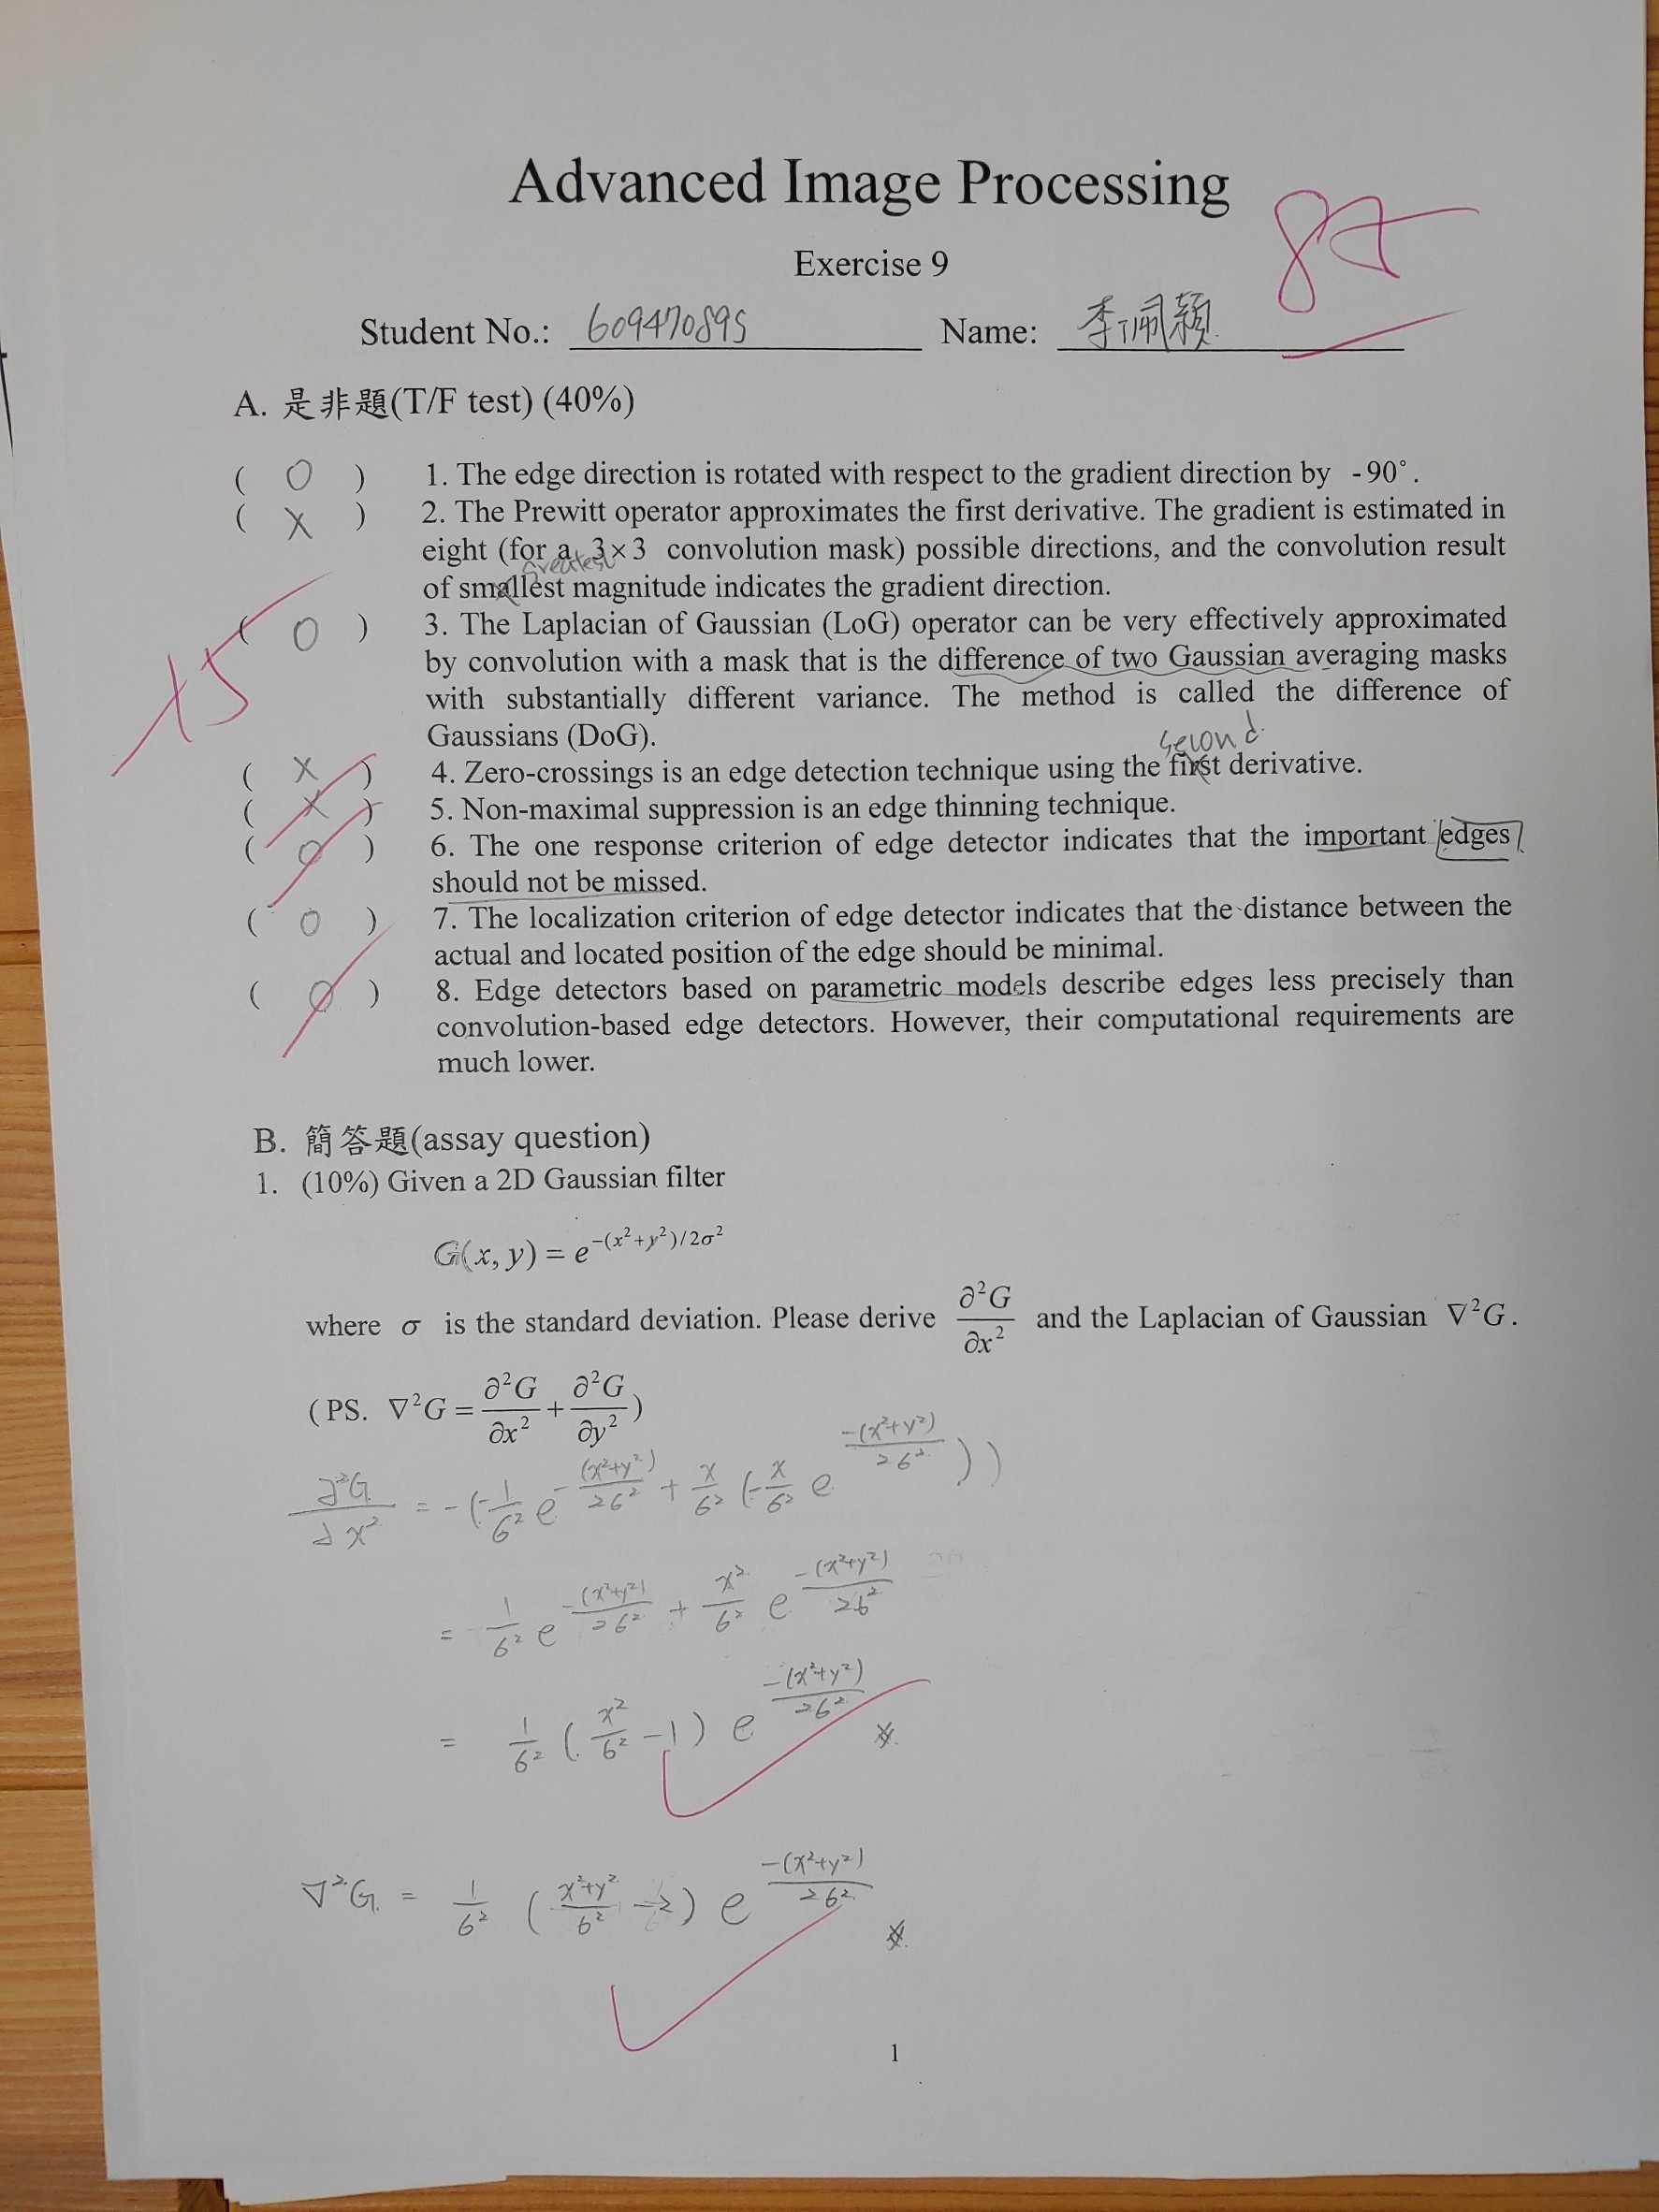 Advanced Image Processing
85
Exercise 9
Student No.: 609470895 Name: 李珮潁
A. 是非題(T/F test) (40%)
( O ) 1. The edge direction is rotated with respect to the gradient direction by -90°.
( X ) 2. The Prewitt operator approximates the first derivative. The gradient is estimated in
eight (for a 3×3 convolution mask) possible directions, and the convolution result
greatest
of smallest magnitude indicates the gradient direction.
( O ) 3. The Laplacian of Gaussian (LoG) operator can be very effectively approximated
by convolution with a mask that is the difference of two Gaussian averaging masks
with substantially different variance. The method is called the difference of
Gaussians (DoG).
second
( X ) 4. Zero-crossings is an edge detection technique using the first derivative.
( X ) 5. Non-maximal suppression is an edge thinning technique.
( O ) 6. The one response criterion of edge detector indicates that the important edges
should not be missed.
( O ) 7. The localization criterion of edge detector indicates that the distance between the
actual and located position of the edge should be minimal.
( O ) 8. Edge detectors based on parametric models describe edges less precisely than
convolution-based edge detectors. However, their computational requirements are
much lower.
B. 簡答題(assay question)
1. (10%) Given a 2D Gaussian filter
G(x, y) = e^{-(x²+y²)/2σ²}
where σ is the standard deviation. Please derive ∂²G/∂x² and the Laplacian of Gaussian ∇²G.
(PS. ∇²G = ∂²G/∂x² + ∂²G/∂y²)
∂²G/∂x² = -(-1/σ² e^{-(x²+y²)/2σ²} + x/σ² (-x/σ² e^{-(x²+y²)/2σ²}))
= -1/σ² e^{-(x²+y²)/2σ²} + x²/σ² e^{-(x²+y²)/2σ²}
= 1/σ² (x²/σ² - 1) e^{-(x²+y²)/2σ²}
∇²G = 1/σ² (x²+y²/σ² - 2) e^{-(x²+y²)/2σ²}
1